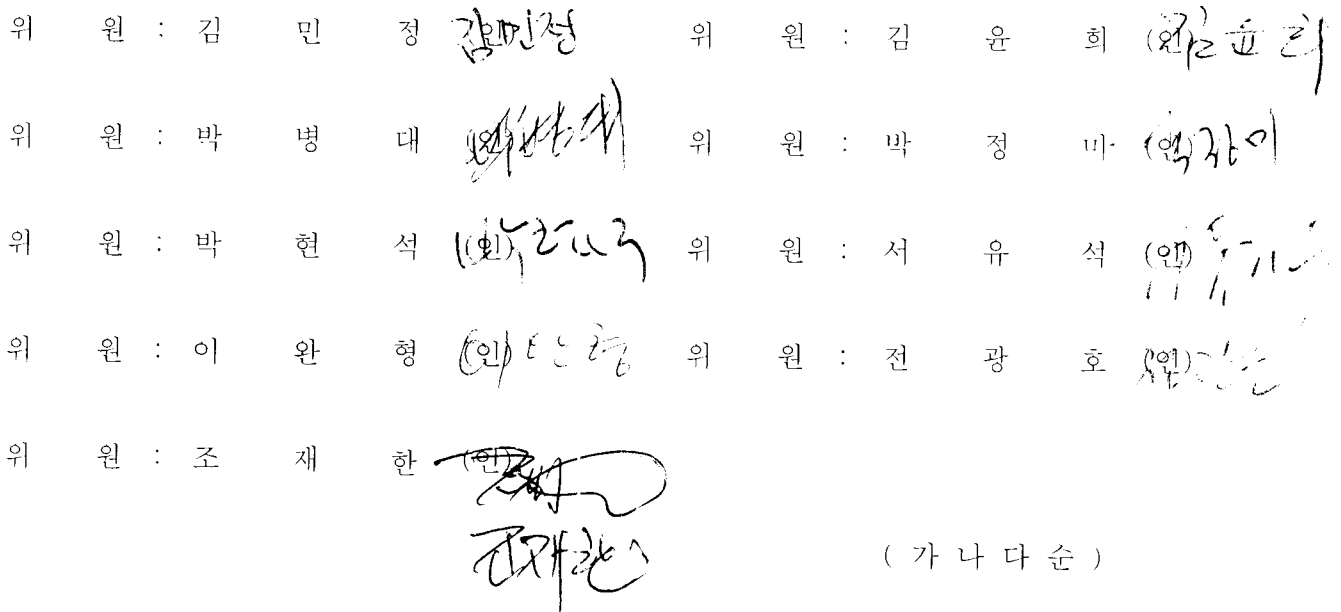 위 원 : 김 민 정 (인) 김민정 위 원 : 김 윤 희 (인) 김윤희
위 원 : 박 병 대 (인) 위 원 : 박 정 미 (인) 박정미
위 원 : 박 현 석 (인) 위 원 : 서 유 석 (인)
위 원 : 이 완 형 (인) 위 원 : 전 광 호 (인)
위 원 : 조 재 한 (인)
조재한
( 가 나 다 순 )